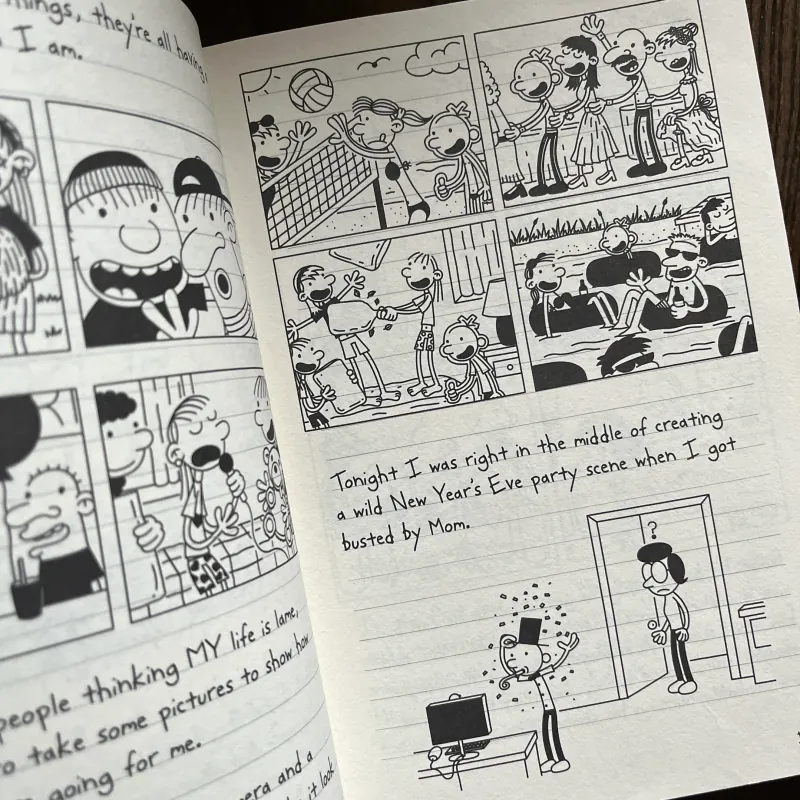 things, they're all having
I am.
people thinking MY life is lame,
to take some pictures to show how
going for me.
and a
it look
Tonight I was right in the middle of creating
a wild New Year's Eve party scene when I got
busted by Mom.
?